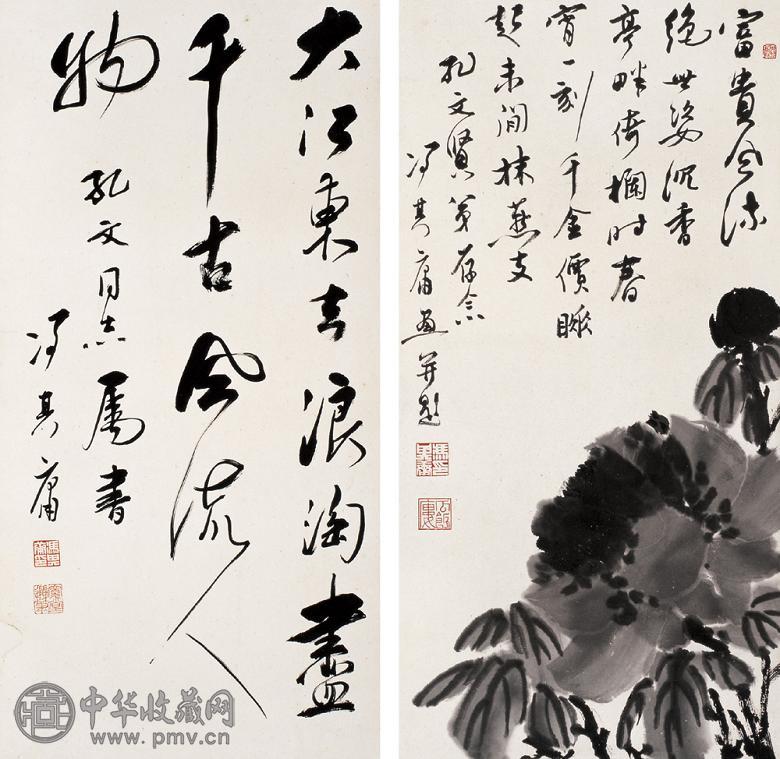 大江東去浪淘盡
千古风流人
物
孔文同志属書
冯其庸
富貴风流
绝世姿沉香
亭畔倚欄时春
宵一刻千金價睡
起未闲抹燕支
孔文贤弟存念
冯其庸画并题
中华收藏网
www.pmv.cn